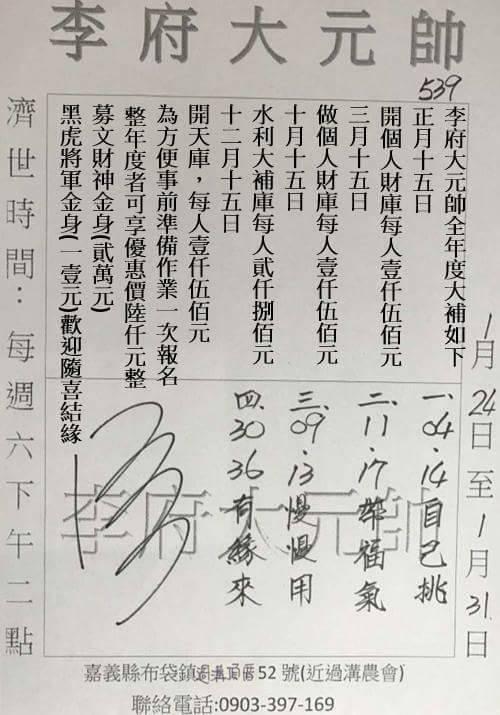 李府大元帥
539
李府大元帥全年度大補如下
正月十五日
開個人財庫每人壹仟伍佰元
三月十五日
做個人財庫每人壹仟伍佰元
十月十五日
水利大補庫每人貳仟捌佰元
十二月十五日
開天庫，每人壹仟伍佰元
為方便事前準備作業一次報名
整年度者可享優惠價陸仟元整
募文財神金身(貳萬元)
黑虎將軍金身(一壹元)歡迎隨喜結緣
濟世時間：每週六下午二點
1月24日至1月31.日
一.04.14自己挑
二.11.17啅福氣
三.09.13慢慢用
四.30 36有緣來
李府大元帥
嘉義縣布袋鎮過溝頂厝52 號(近過溝農會)
聯絡電話:0903-397-169